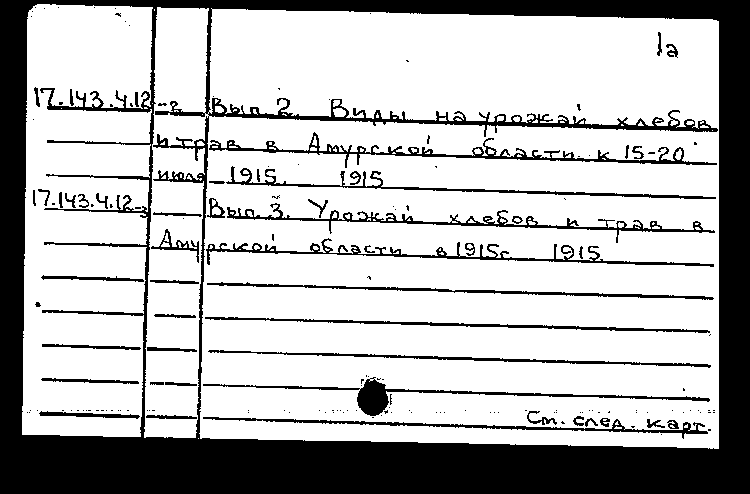 1а
17.143.4.12-2 Вып. 2. Виды на урожай хлебов
и трав в Амурской области к 15-20
июля 1915. 1915
17.143.4.12-3 Вып. 3. Урожай хлебов и трав в
Амурской области в 1915г. 1915.
См. след. карт.